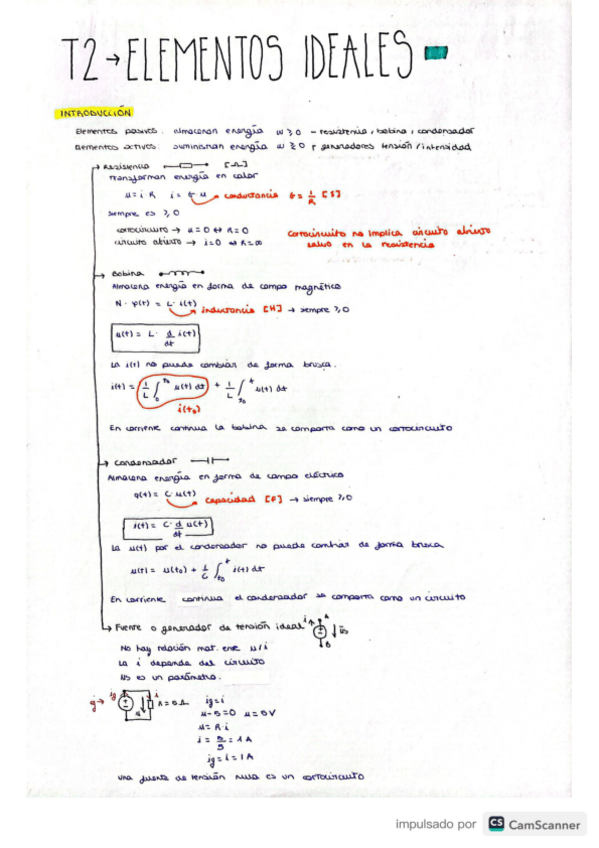 T2→ELEMENTOS IDEALES
INTRODUCCIÓN
Elementos pasivos: almacenan energía w ≥ 0 - resistencia, bobina, condensador
Elementos activos: suministran energía w ≥ 0 generadores tensión/intensidad
→ Resistencia [Ω]
Transforman energía en calor
u = i R i = G u → conductancia G = 1/R [S]
siempre es ≥ 0
cortocircuito → u = 0 ↔ R = 0
circuito abierto → i = 0 ↔ R = ∞
Cortocircuito no implica circuito abierto
salvo en la resistencia
→ Bobina
Almacena energía en forma de campo magnético
N · φ(t) = L · i(t)
inductancia [H] → siempre ≥ 0
u(t) = L · d/dt i(t)
La i(t) no puede cambiar de forma brusca.
i(t) = 1/L ∫ u(t) dt + 1/L ∫ u(t) dt
i(t₀)
En corriente continua la bobina se comporta como un cortocircuito
→ Condensador
Almacena energía en forma de campo eléctrico
q(t) = C · u(t)
capacidad [F] → siempre ≥ 0
i(t) = C · d/dt u(t)
La u(t) por el condensador no puede cambiar de forma brusca
u(t) = u(t₀) + 1/C ∫ i(t) dt
En corriente continua el condensador se comporta como un circuito
→ Fuente o generador de tensión ideal i A
B
No hay relación mat. entre u/i
La i depende del circuito
No es un parámetro.
g→ ig i R = 5 Ω
ig = i
u - 5 = 0 u = 5V
u = R · i
i = 5/5 = 1 A
ig = i = 1 A
una fuente de tensión nula es un cortocircuito
impulsado por CS CamScanner